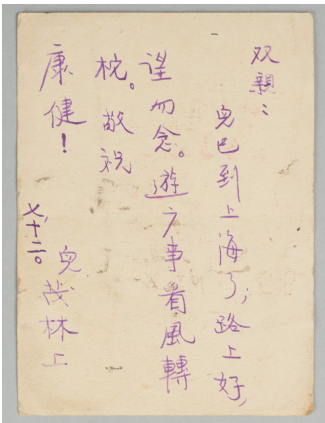 双親：
兒已到上海了；路上好，
望勿念。遊广事看風轉
柁。敬祝
康健！
兒茂林上
七、十二。